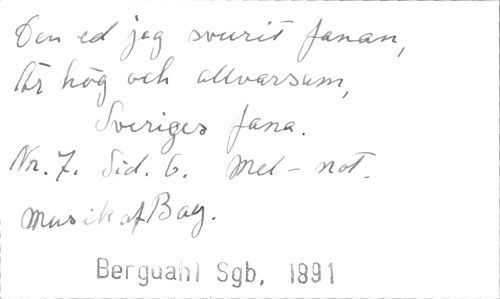 Den ed jag svurit fanan,
Är hög och allvarsam,
Sveriges fana.
Nr. 7. Sid. 6. Mel-not.
Musik af Bag.
Berguahl Sgb, 1891